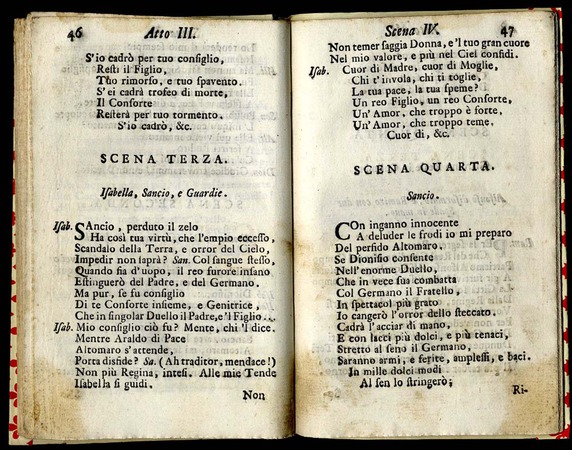 46 Atto III.
S'io cadrò per tuo consiglio,
Resti il Figlio,
Tuo rimorso, e tuo spavento.
S'ei cadrà trofeo di morte,
Il Consorte
Resterà per tuo tormento.
S'io cadrò, &c.
SCENA TERZA.
Isabella, Sancio, e Guardie.
Isab. SAncio, perduto il zelo
Ha così tua virtù, che l'empio eccesso,
Scandalo della Terra, e orror del Cielo,
Impedir non saprà? San. Col sangue stesso,
Quando fia d'uopo, il reo furore insano
Estinguerò del Padre, e del Germano.
Ma pur, fe fu consiglio
Di te Consorte insieme, e Genitrice,
Che in singolar Duello il Padre, e 'l Figlio...
Isab. Mio consiglio ciò fu? Mente, chi 'l dice.
Mentre Araldo di Pace
Altomaro s'attende,
Porta disfide? Sa. (Ah traditor, mendace!)
Non più Regina, intesi. Alle mie Tende
Isabella si guidi.
Non
Scena IV. 47
Non temer saggia Donna, e 'l tuo gran cuore
Nel mio valore, e più nel Ciel confidi.
Isab. Cuor di Madre, cuor di Moglie,
Chi t'invola, chi ti toglie,
La tua pace, la tua speme?
Un reo Figlio, un reo Consorte,
Un' Amor, che troppo è forte,
Un' Amor, che troppo teme.
Cuor di, &c.
SCENA QUARTA.
Sancio.
COn inganno innocente
A deluder le frodi io mi preparo
Del perfido Altomaro.
Se Dionisio consente
Nell'enorme Duello,
Che in vece sua combatta
Col Germano il Fratello,
In spettacol più grato
Io cangerò l'orror dello steccato.
Cadrà l'acciar di mano,
E con lacci più dolci, e più tenaci,
Stretto al seno il Germano,
Saranno armi, e ferite, amplessi, e baci.
In mille dolci modi
Al sen lo stringerò;
Ri-